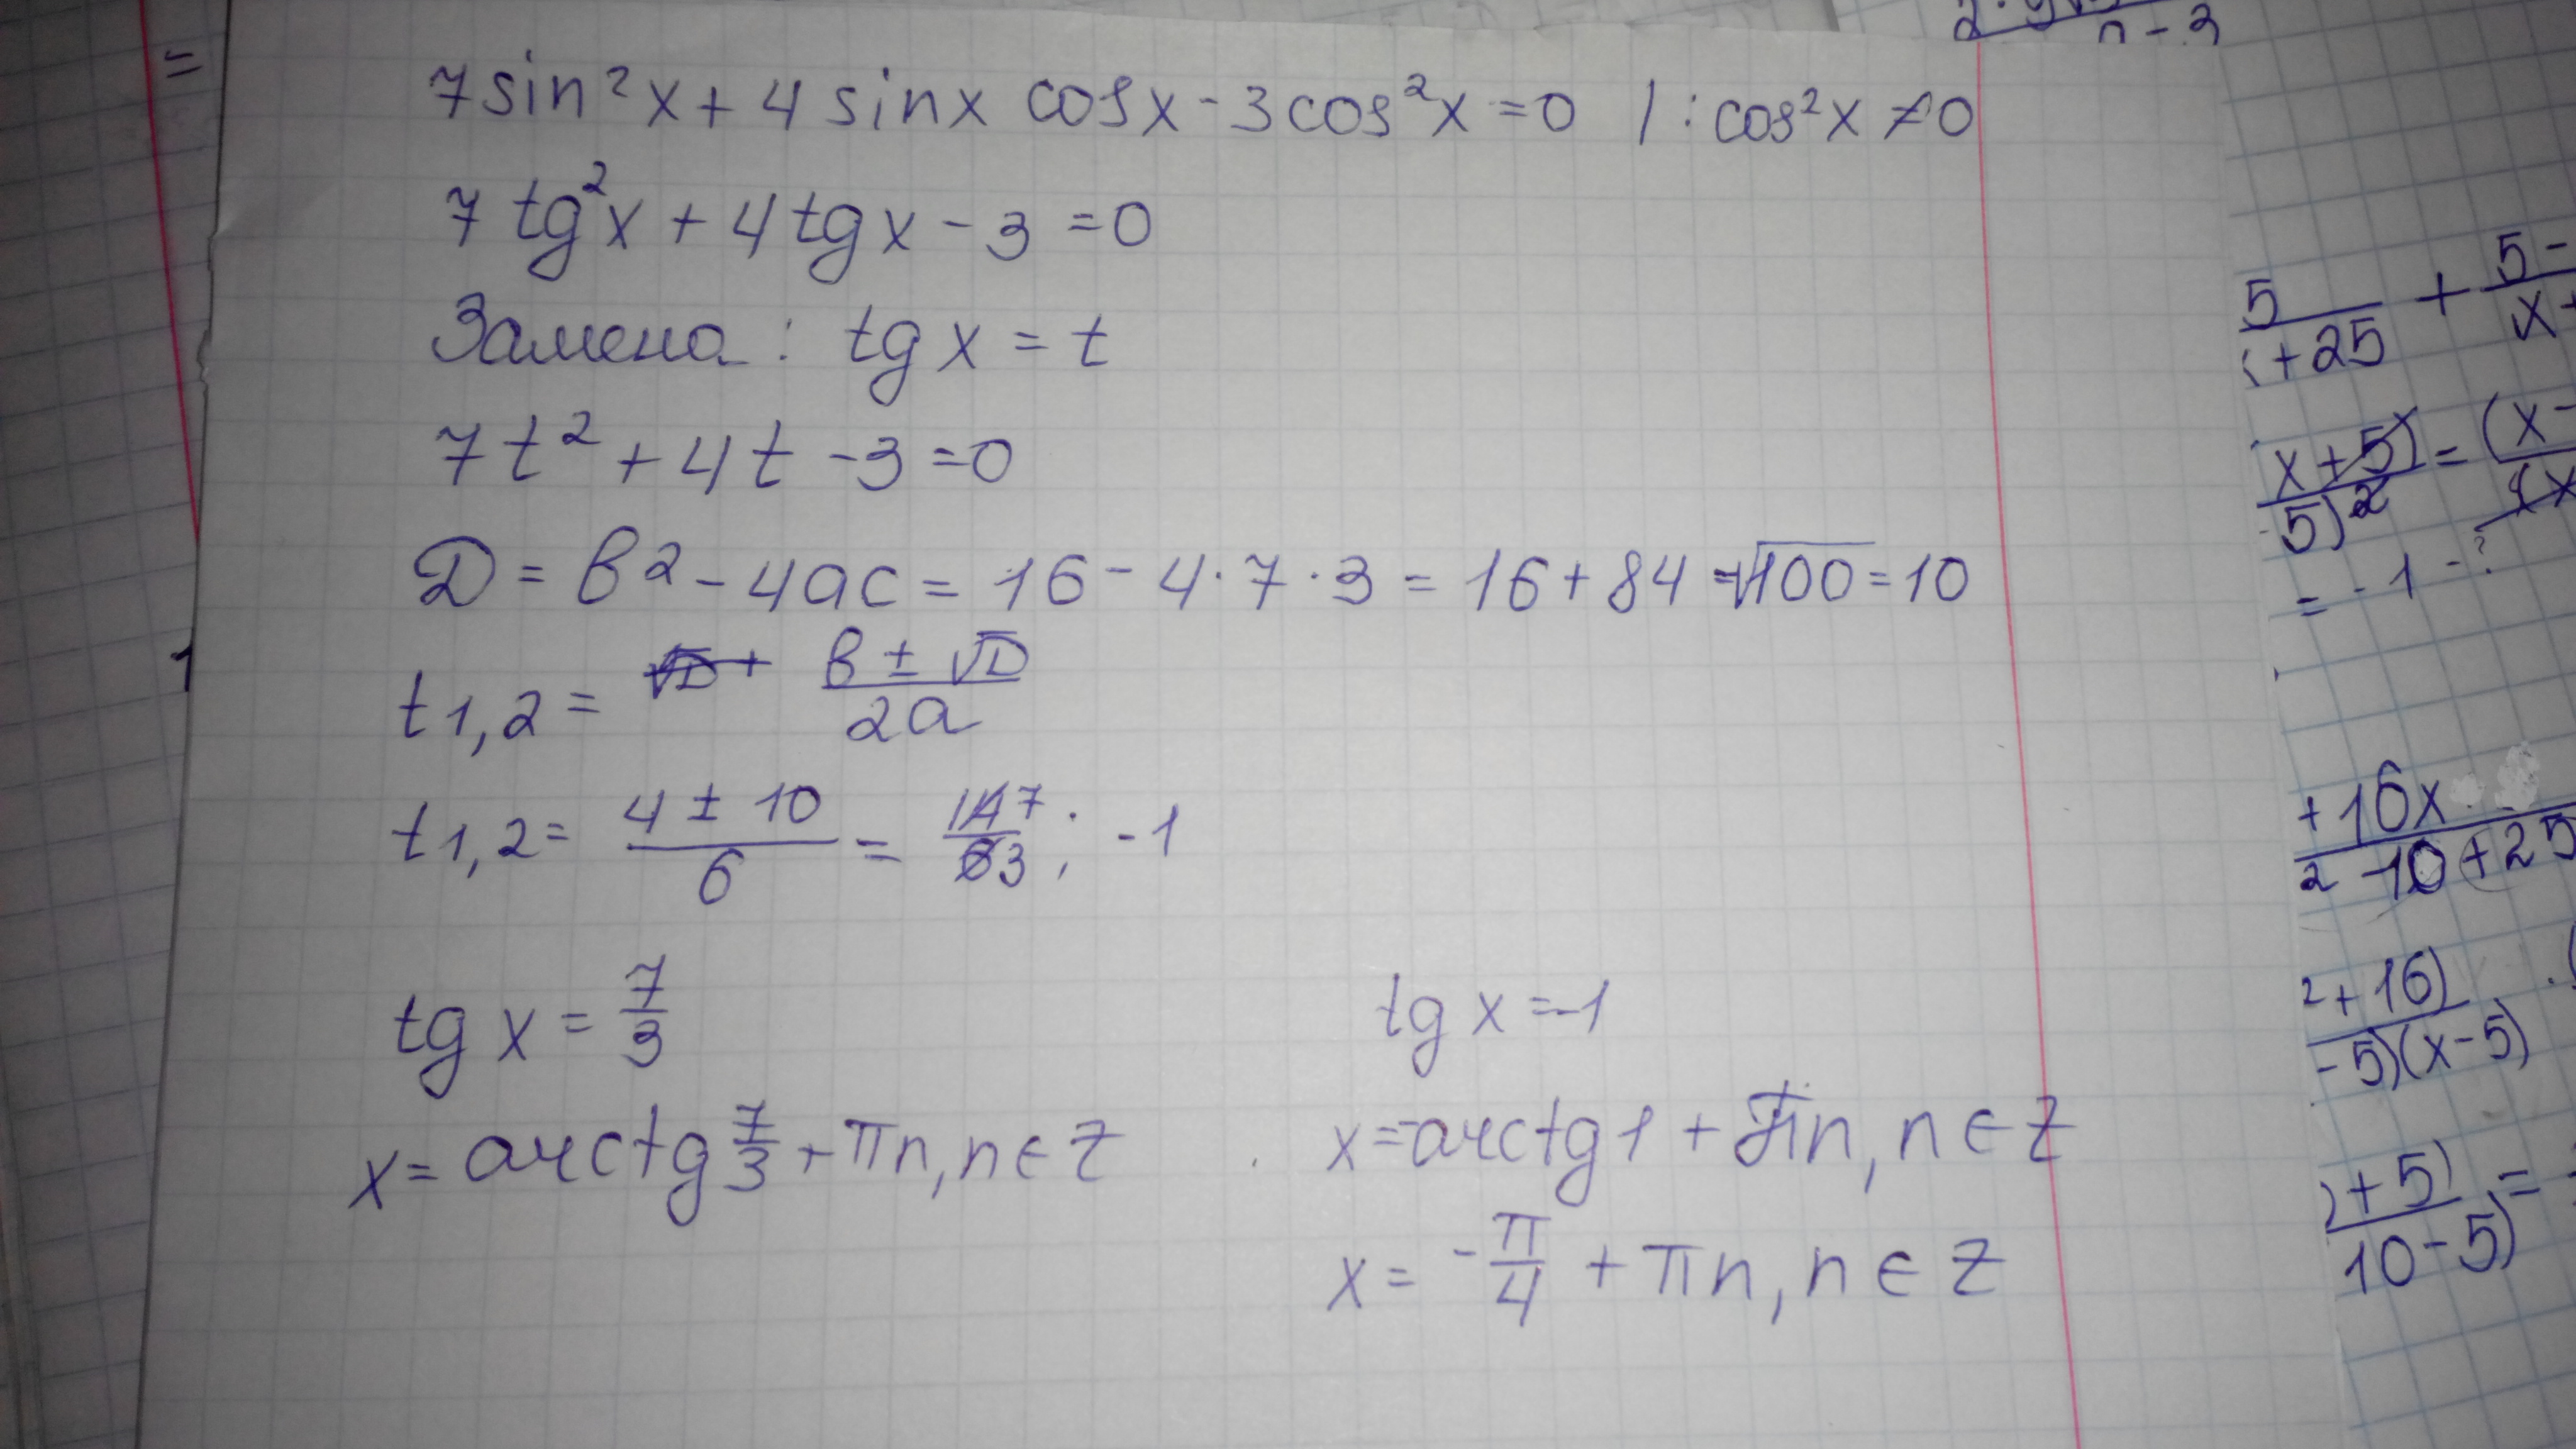 7sin²x + 4 sinx cosx - 3cos²x = 0 | : cos²x ≠ 0
7 tg²x + 4tgx - 3 = 0
Замена: tg x = t
7t² + 4t - 3 = 0
D = b² - 4ac = 16 - 4·7·3 = 16 + 84 = √100 = 10
t1,2 = b ± √D / 2a
t1,2 = 4 ± 10 / 6 = 14 7 / 6 3 ; -1
tg x = 7/3
tg x = -1
x = arctg 7/3 + πn, n ∈ Z
x = -arctg 1 + πn, n ∈ Z
x = -π/4 + πn, n ∈ Z
n - 3
5 / + 25 + 5 - / x +
x + 5) / 5)² = (x - / (x
= -1 - ?
+ 16x / 2 - 10 + 25
² + 16) / - 5)(x - 5)
+ 5) / 10 - 5) =